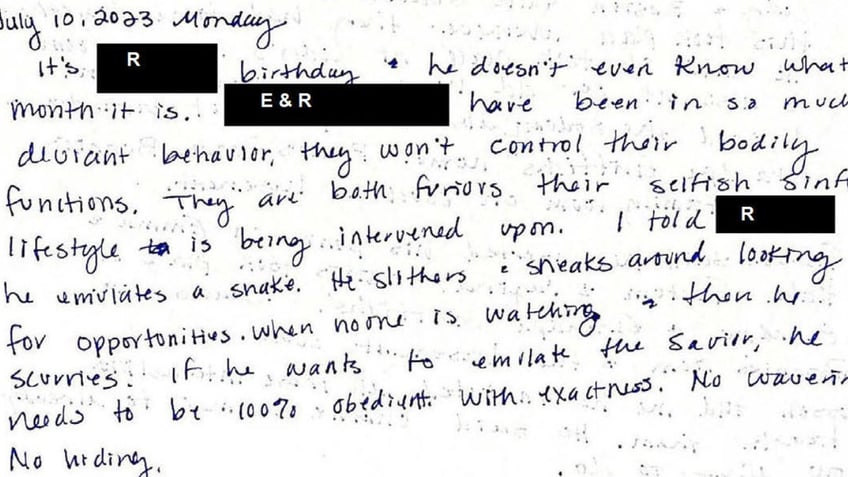 July 10, 2023 Monday
It's R birthday & he doesn't even know what
month it is. E & R have been in so much
deviant behavior, they won't control their bodily
functions. They are both furious their selfish sinf
lifestyle is being intervened upon. I told R
he emulates a snake. He slithers & sneaks around looking
for opportunities when no one is watching & then he
scurries. If he wants to emilate the Savior, he
needs to be 100% obedient with exactness. No waverin
No hiding.